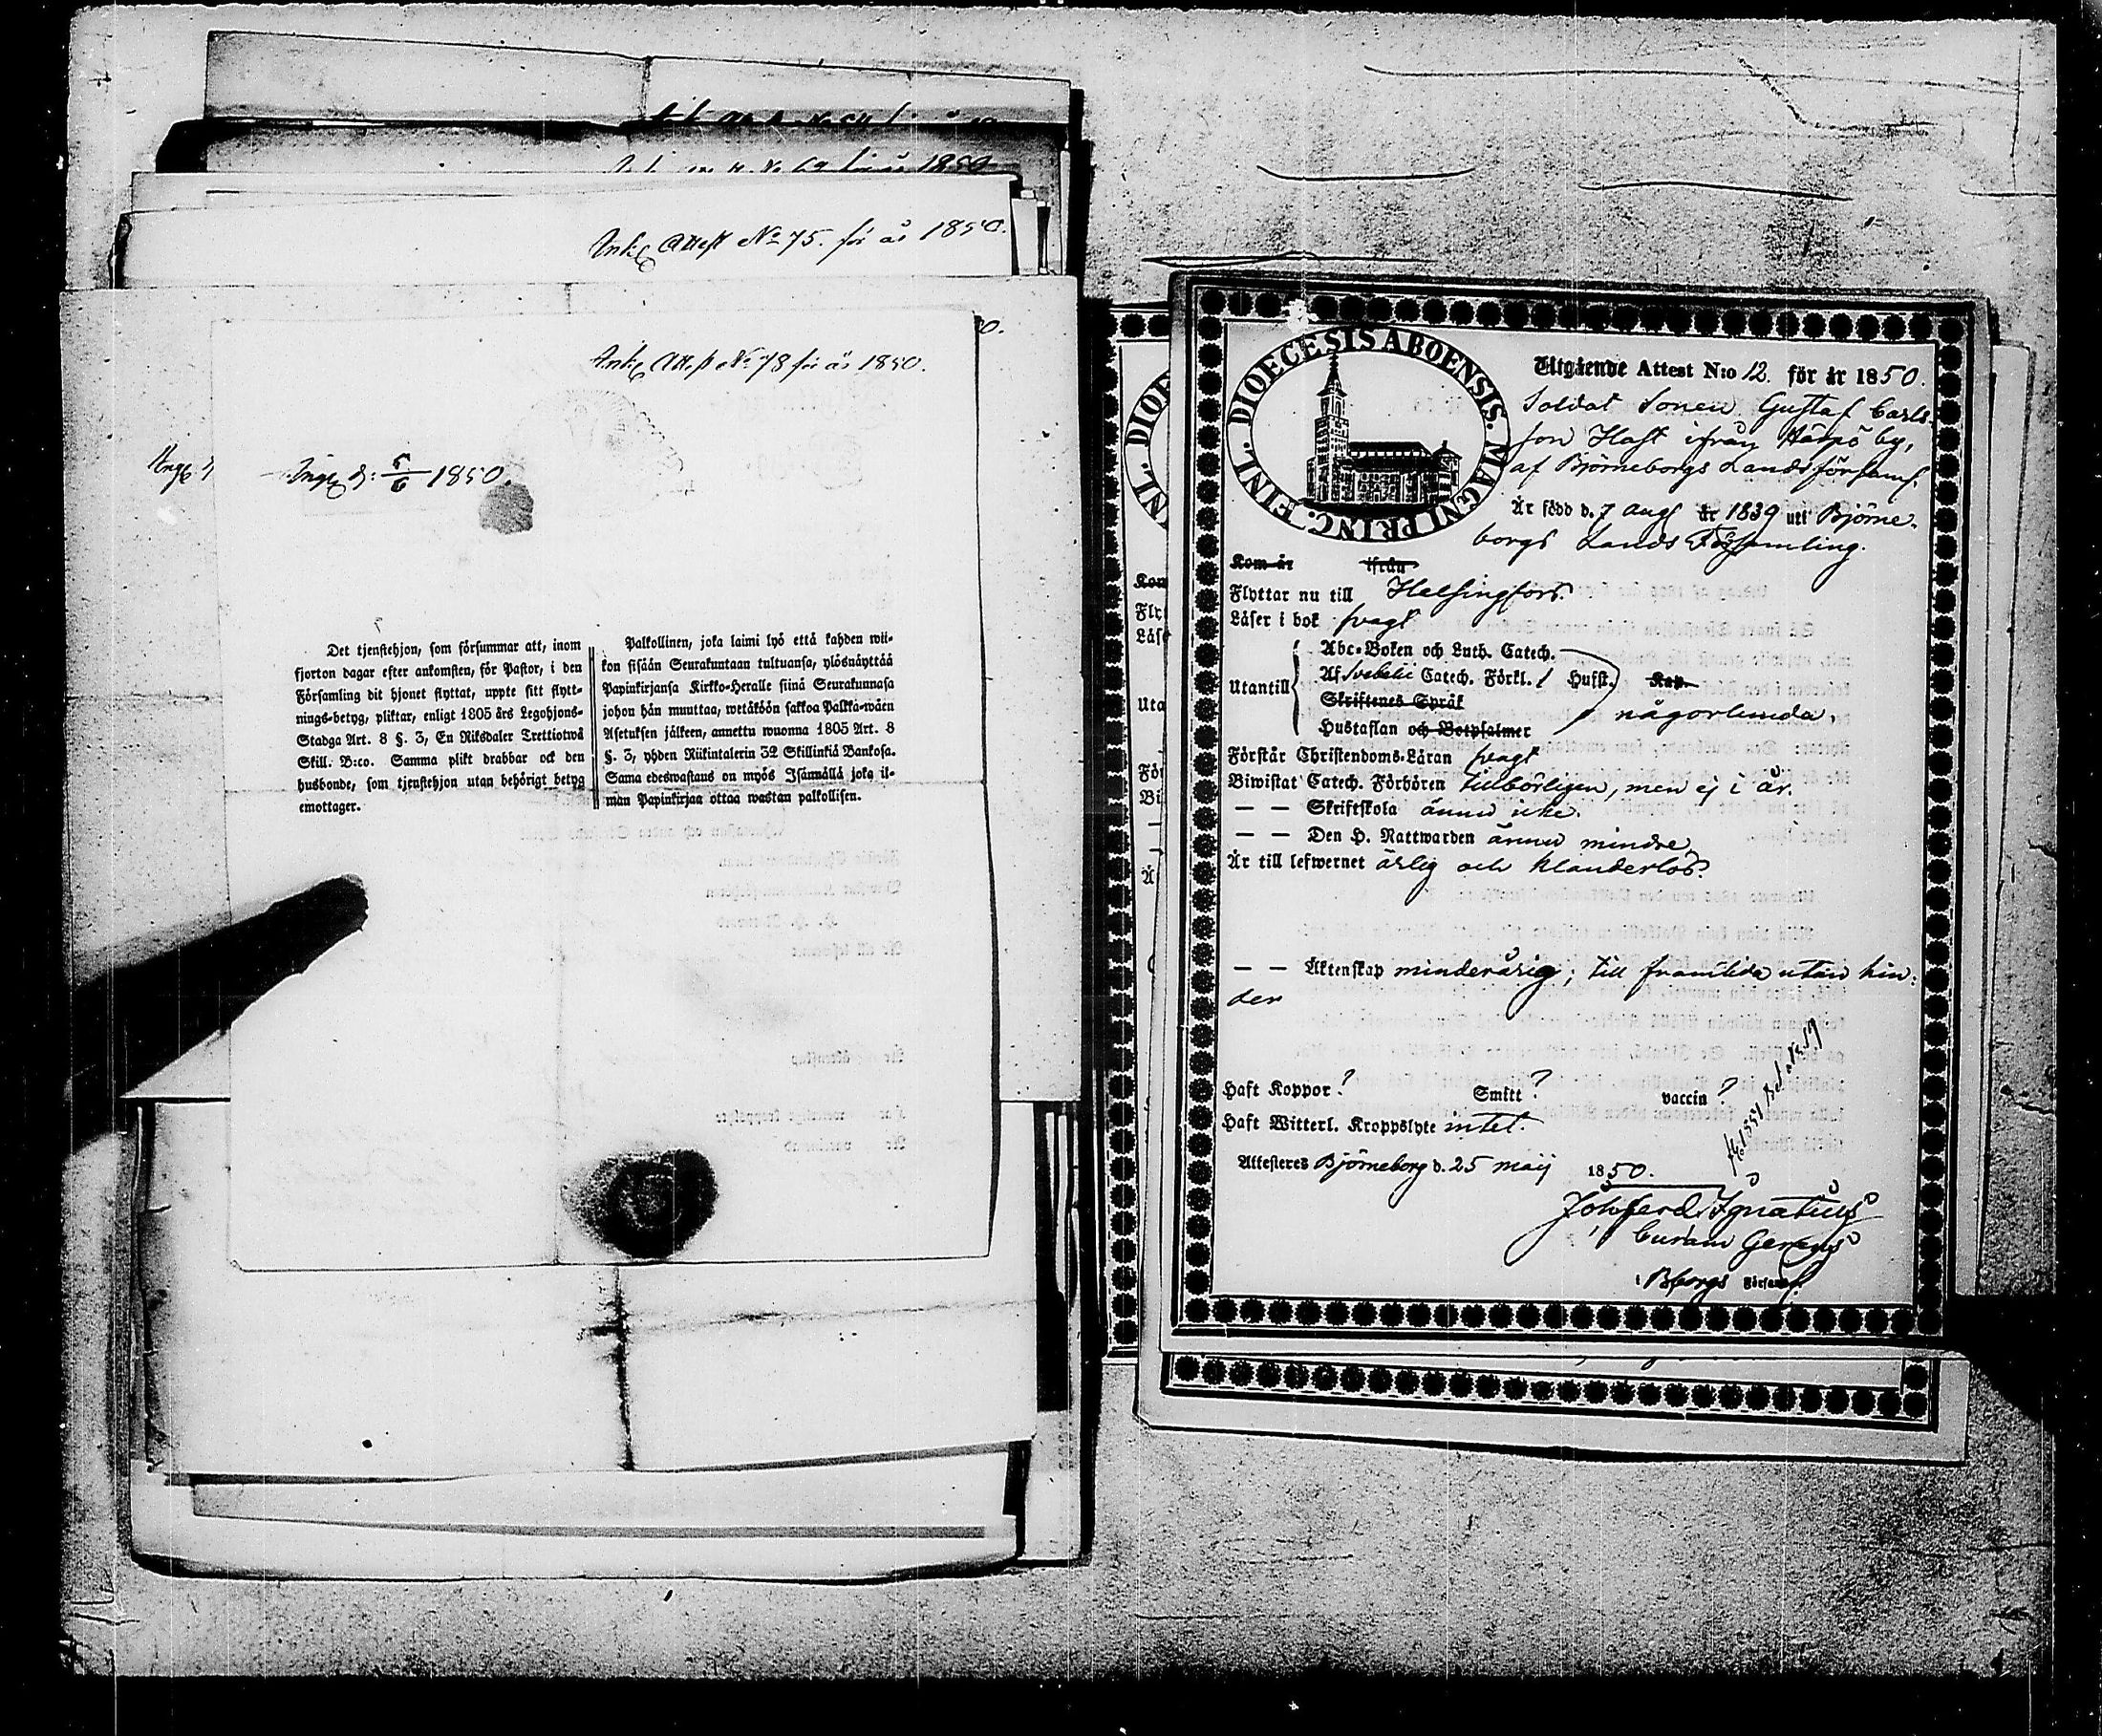 Ank. Attest No 75. för år 1850.
Ank. Attest No 78 för år 1850.
Ing. d: 5/6 1850.
Det tjenstehjon, som försummar att, inom
fjorton dagar efter ankomsten, för Pastor, i den
Församling dit hjonet flyttat, uppte sitt flytt-
nings-betyg, pliktar, enligt 1805 års Legohjons-
Stadga Art. 8 §. 3, En Riksdaler Trettiotwå
Skill. B:co. Samma plikt drabbar ock den
husbonde, som tjenstehjon utan behörigt betyg
emottager.
Palkollinen, joka laimi lyö että kahden wii-
kon sisään Seurakuntaan tultuansa, ylösnäyttää
Papinkirjansa Kirkko-Heralle siinä Seurakunnasa
johon hän muuttaa, wetäköön sakkoa Palkka-wäen
Asetuksen jälkeen, annettu wuonna 1805 Art. 8
§. 3, yhden Riikintalerin 32 Skillinkiä Bankosa.
Sama edeswastaus on myös Isännällä joka il-
man Papinkirjaa ottaa wastan palkollisen.
DIOECESIS ABOENSIS. MAGNI PRINC. FINL.
Utgående Attest N:o 12. för år 1850.
Soldat Sonen Gustaf Carls
son Hast ifrån by,
af Björneborgs Landsförsaml.
Är född d. 7 Aug år 1839 uti Björne-
borgs Lands Församling.
Kom år ifrån
Flyttar nu till Helsingfors.
Läser i bok svagt
Utantill
Abc-Boken och Luth. Catech.
Af Svebelii Catech. Förkl. Hufst. Kap.
Skriftenes Språk
Hustaflan och Botpsalmer
någorlunda.
Förstår Christendoms-Läran svagt
Biwistat Catech. Förhören tillbörligen, men ej i år.
— — Skriftskola ännu icke.
— — Den H. Nattwarden ännu mindre
Är till lefwernet ärlig och klanderlös.
— — Äktenskap minderårig; till framtida utan hin-
der
Haft Koppor ? Smitt ? vaccin ?
Haft Witterl. Kroppslyte intet.
Attesteres Björneborg d. 25 maij 1850.
Joh. Ferd. Ignatius
Curam Gerens
i Bborgs Församl.